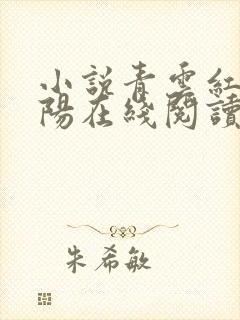 小説青雲紅
陽在綫閱讀
朱希敏